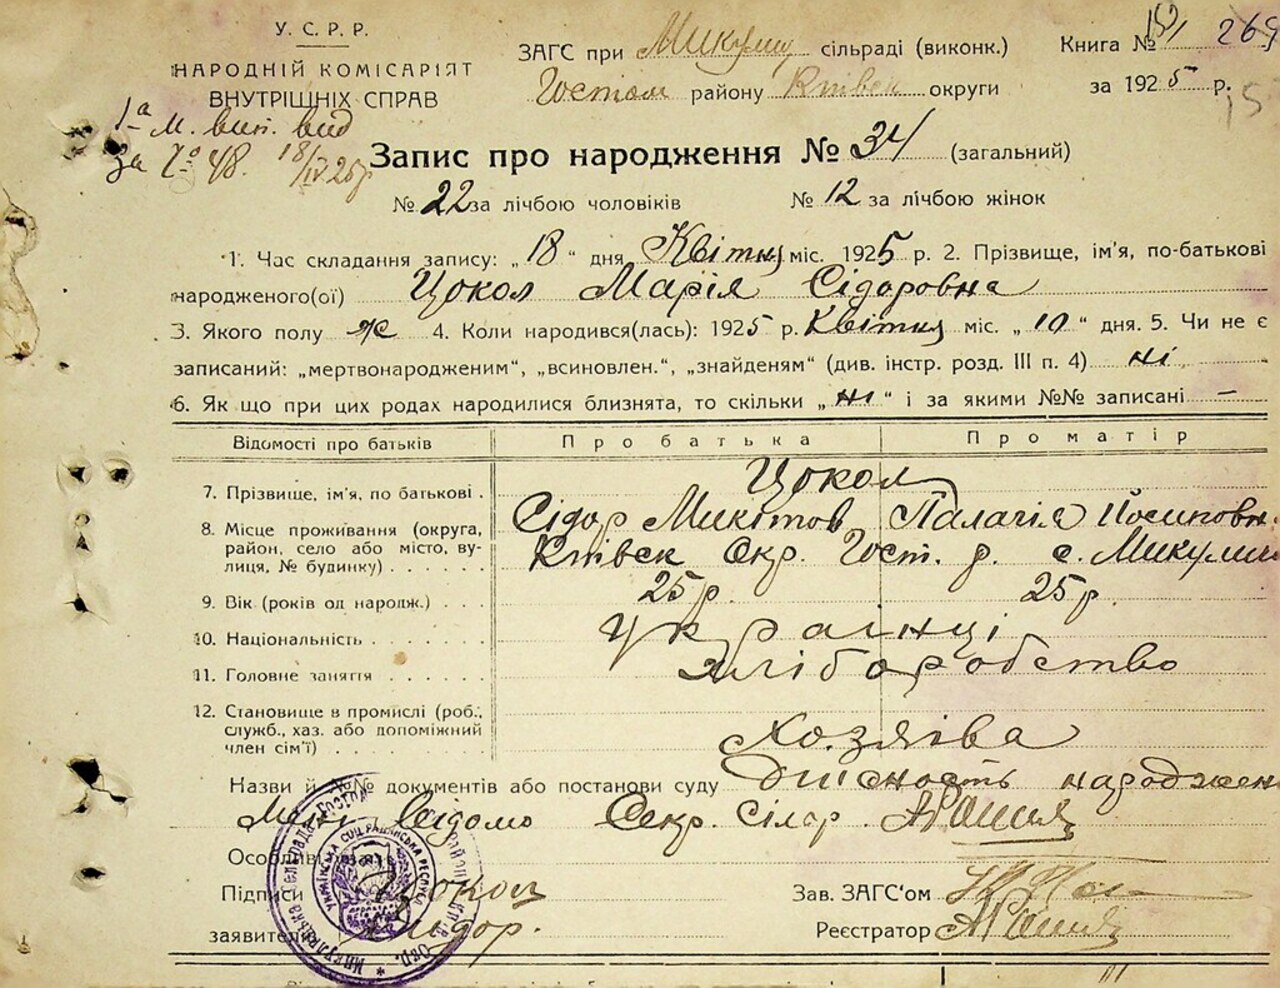 У. С. Р. Р.
НАРОДНІЙ КОМІСАРІЯТ
ВНУТРІШНІХ СПРАВ
ЗАГС при Микулиц сільраді (виконк.) Книга № 151 269
Гостом району Київск округи за 1925 р.
15
1а м. вип. вид
За № 48. 18/IV 25р
Запис про народження № 34 (загальний)
№ 22 за лічбою чоловіків № 12 за лічбою жінок
1. Час складання запису: „18“ дня Квітня міс. 1925 р. 2. Прізвище, ім'я, по-батькові
народженого(ої) Цокол Марія Сідоровна
3. Якого полу ж 4. Коли народився(лась): 1925 р. Квітня міс. „10“ дня. 5. Чи не є
записаний: „мертвонародженим“, „всиновлен.“, „знайденям“ (див. інстр. розд. III п. 4) ні
6. Як що при цих родах народилися близнята, то скільки „ні“ і за якими №№ записані —
Відомості про батьків Про батька Про матір
7. Прізвище, ім'я, по батькові . Цокол
Сідор Микітов Палагія Йосиповн.
8. Місце проживання (округа,
район, село або місто, ву-
лиця, № будинку) . . . . . . Київск Окр. Гост. р. с. Микулич
9. Вік (років од народж.) . . . 25 р. 25 р.
10. Національність . . . . . . . українці
11. Головне заняття . . . . . . хліборобство
12. Становище в промислі (роб.,
служб., хаз. або допоміжний
член сім'ї) . . . . . . . . Хозяїва
Назви й №№ документів або постанови суду дійсность народжен
мені відомо Секр. Сілар.
Особливі
Підписи Цокол Зав. ЗАГС'ом
заявителів Сидор. Реєстратор